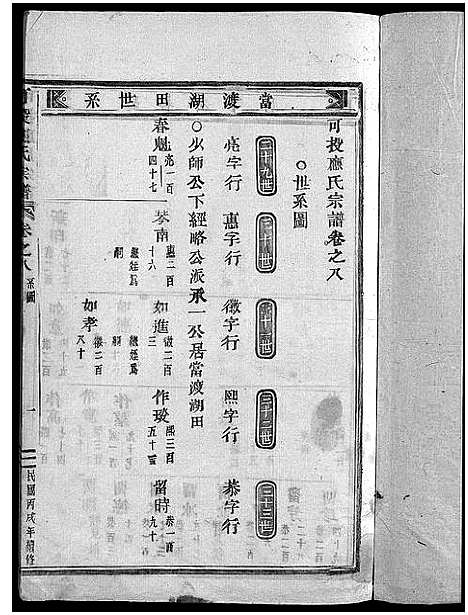 當渡湖田世系
可投應氏宗譜卷之八
○世系圖
二十九世 三十世 三十一世 三十二世 三十三世
亮字行 惠字行 徵字行 熙字行 恭字行
○少師公下經略公派承一公居當渡湖田
春魁 亮一百四十七
琴南 惠二百十六 繼廷爲嗣
如進 徵二百三 繼廷爲嗣
作琰 熙三百五十四
留時 恭一百九十
如孝 徵二百八十
氏宗譜 卷之八 系圖
一
民國丙戌年續修